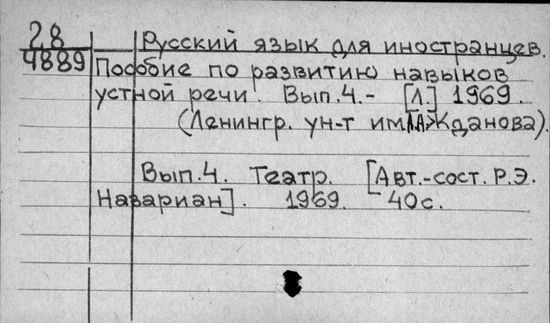 28
4889
Русский язык для иностранцев.
Пособие по развитию навыков
устной речи. Вып.4.- [Л.] 1969.
(Ленингр. ун-т им. А.А.Жданова).
Вып.4. Театр. [Авт.-сост. Р.Э.
Назариан]. 1969. 40с.